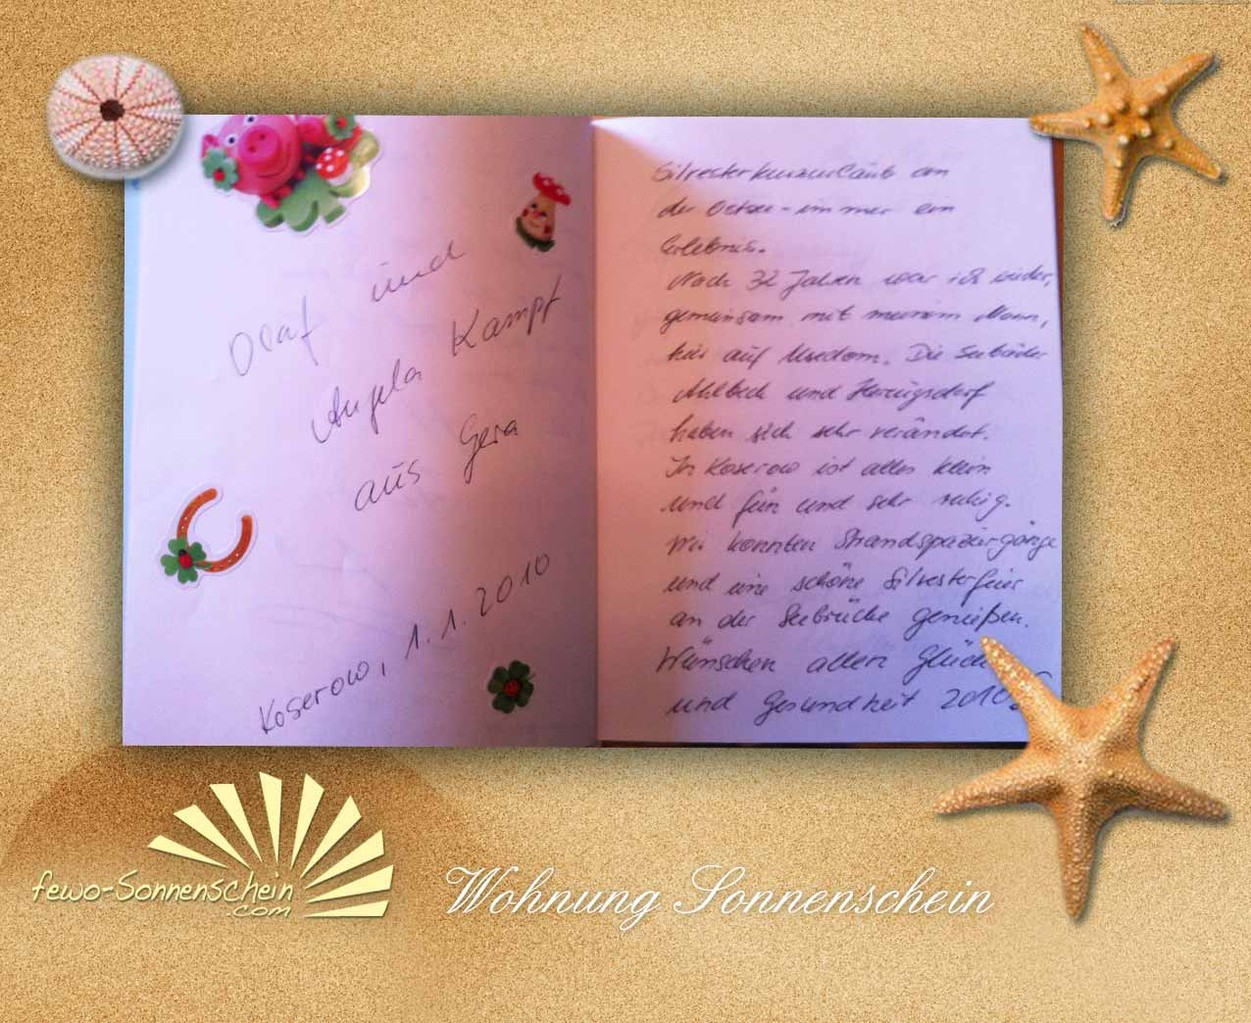 Olaf und
Angela Kampf
aus Gera
Koserow, 1.1.2010
Silvesterkurzurlaub an
der Ostsee - immer ein
Erlebnis.
Nach 32 Jahren war ich wieder,
gemeinsam mit meinem Mann,
hier auf Usedom. Die Seebäder
Ahlbeck und Heringsdorf
haben sich sehr verändert.
In Koserow ist alles klein
und fein und sehr ruhig.
Wir konnten Strandspaziergänge
und eine schöne Silvesterfeier
an der Seebrücke genießen.
Wünschen allen Glück
und Gesundheit 2010
fewo-Sonnenschein
.com
Wohnung Sonnenschein